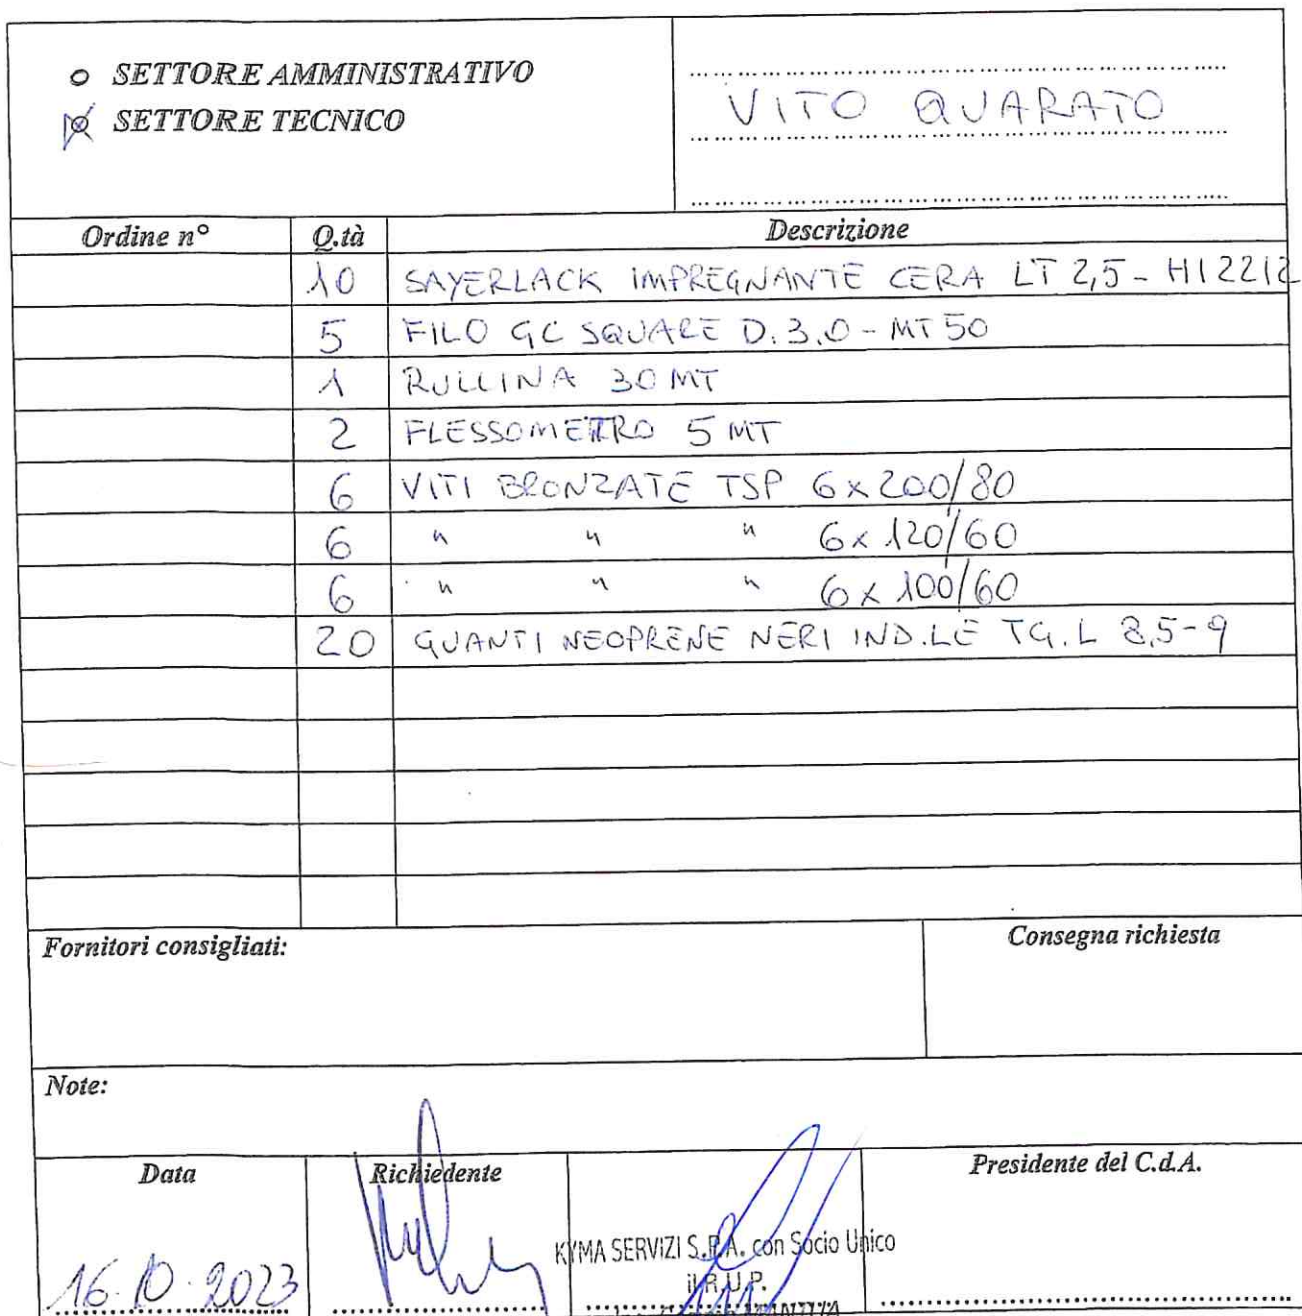 o SETTORE AMMINISTRATIVO
SETTORE TECNICO
VITO QUARATO
Ordine n° Q.tà Descrizione
10 SAYERLACK IMPREGNANTE CERA LT 2,5 - HI2212
5 FILO GC SQUARE D. 3.0 - MT 50
1 RULLINA 30 MT
2 FLESSOMETRO 5 MT
6 VITI BRONZATE TSP 6x200/80
6 " " " 6x120/60
6 " " " 6x100/60
20 GUANTI NEOPRENE NERI IND.LE TG.L 8,5-9
Fornitori consigliati: Consegna richiesta
Note:
Data Richiedente Presidente del C.d.A.
KYMA SERVIZI S.P.A. con Socio Unico
il R.U.P.
16.10.2023